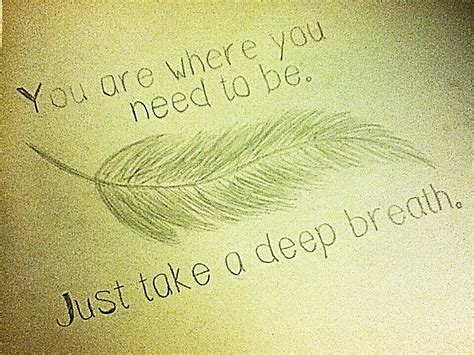 You are where you
need to be.
Just take a deep breath.